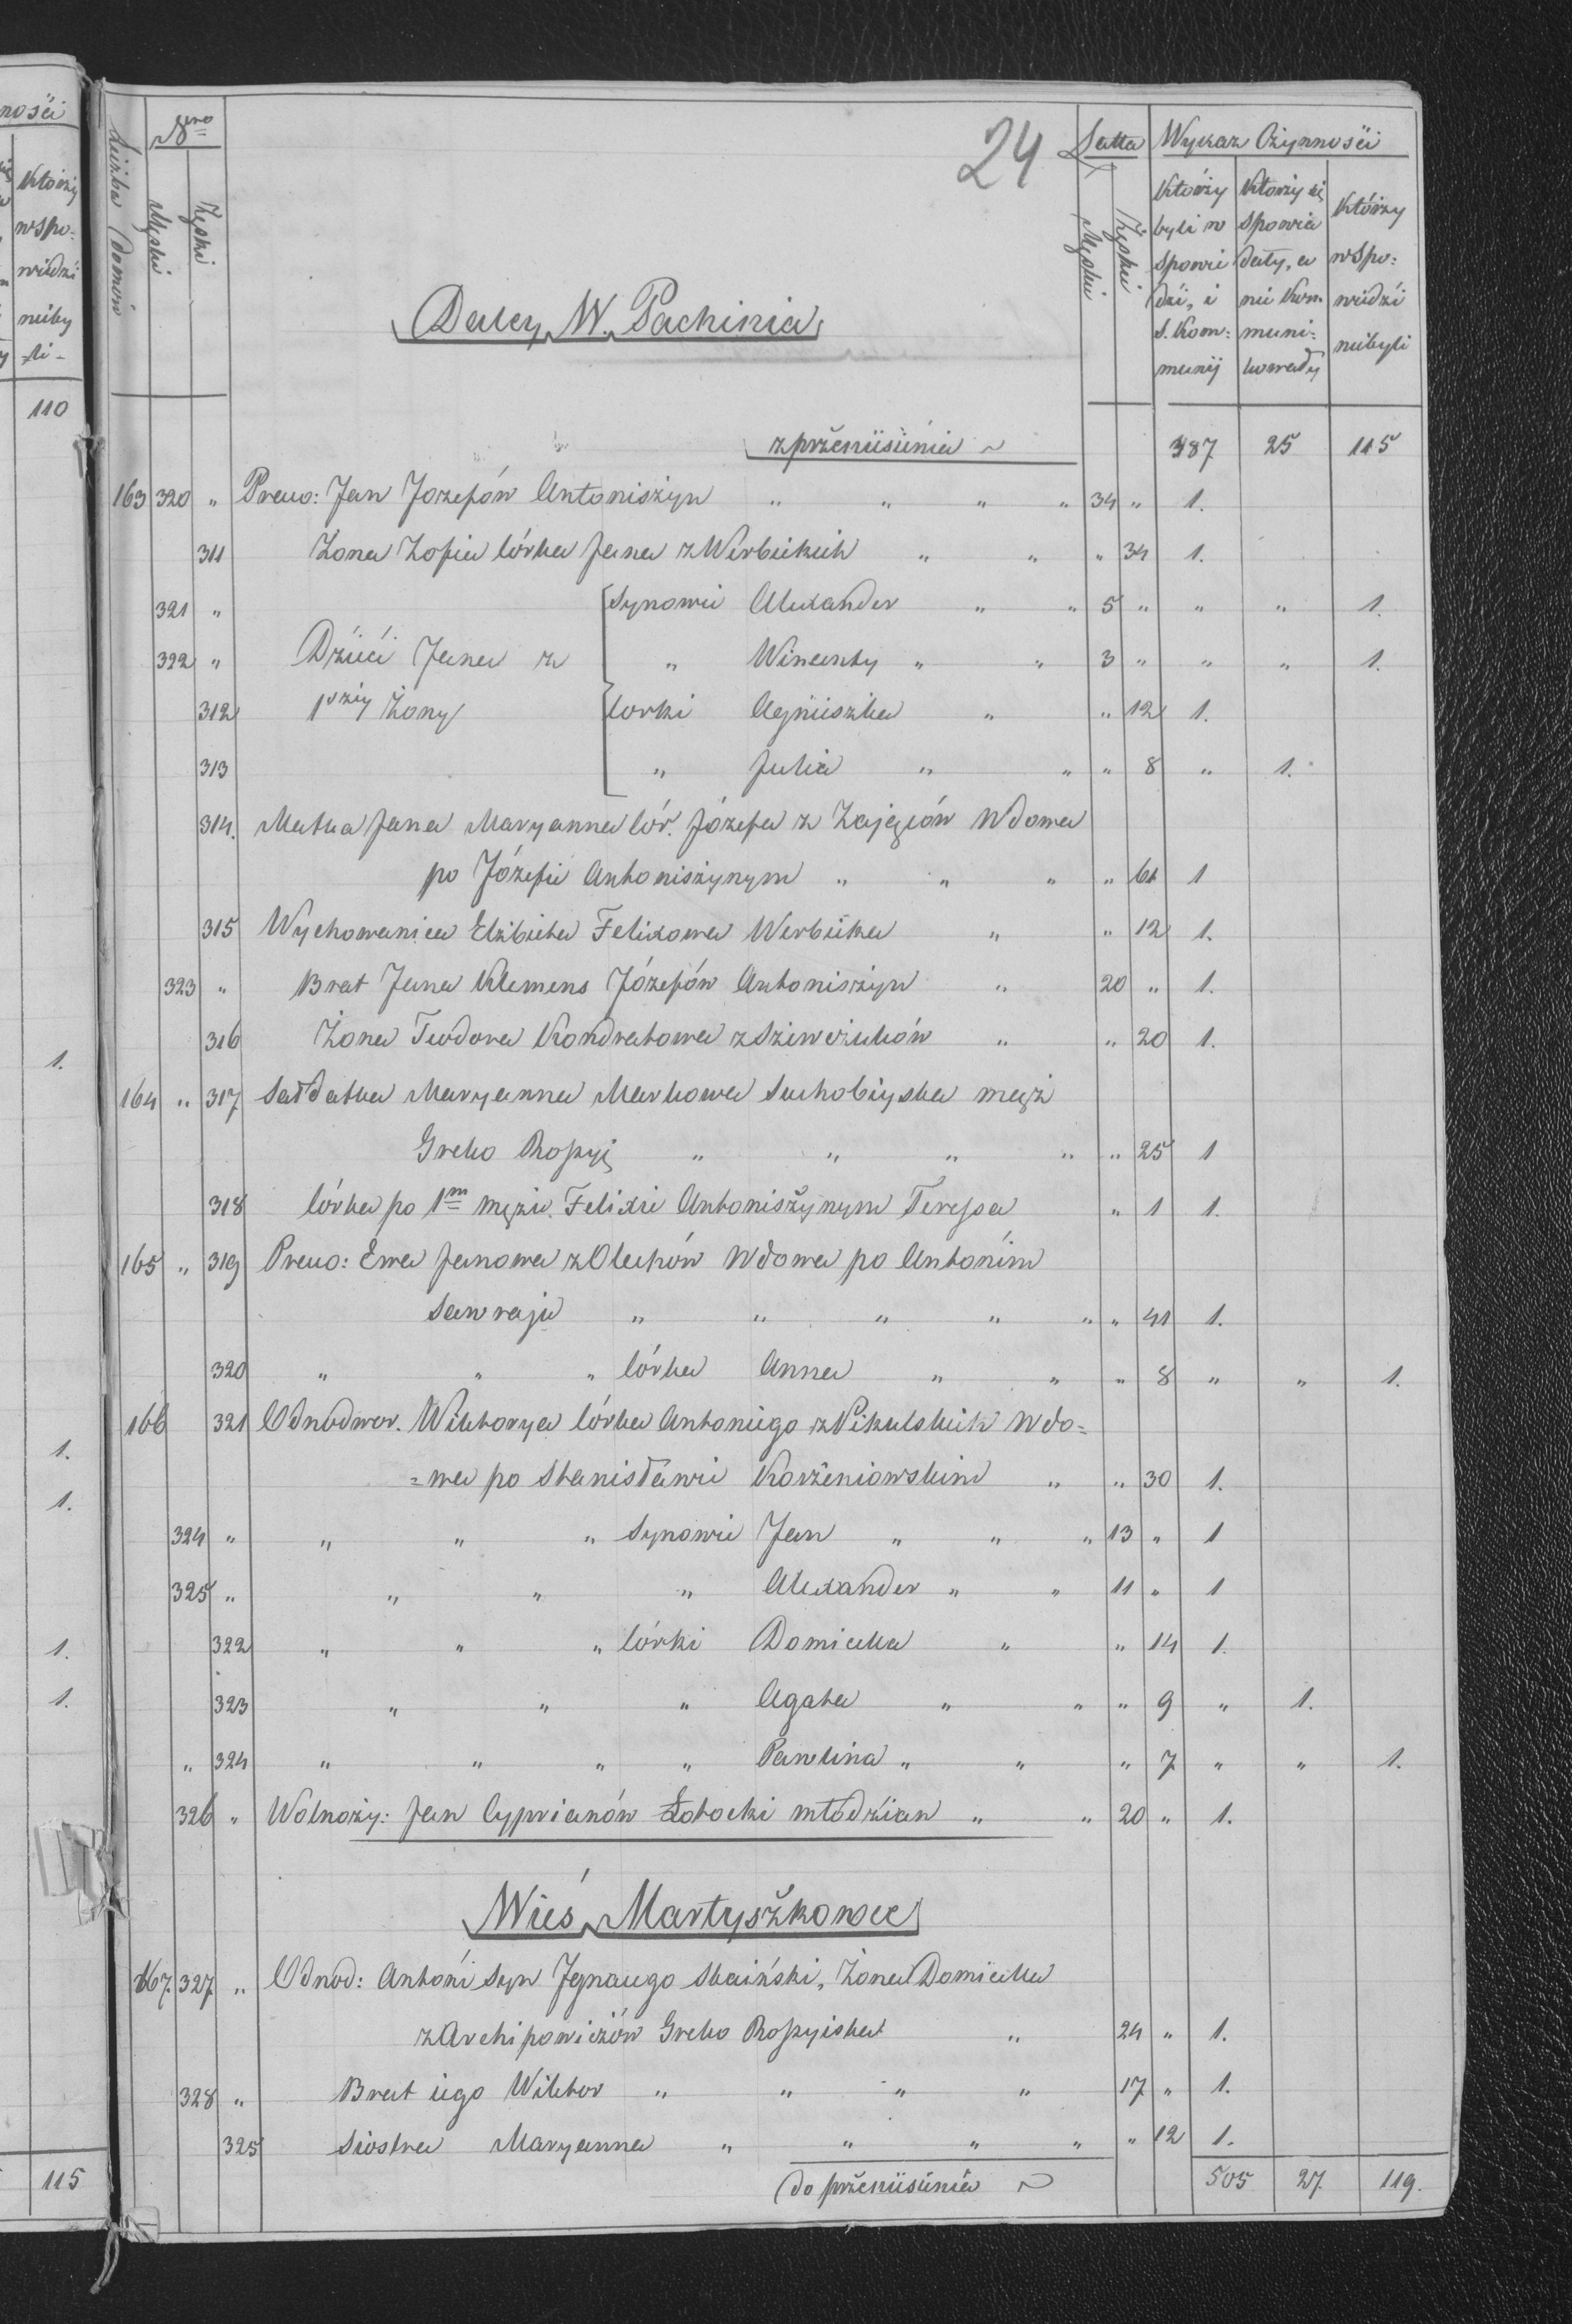 24
Liczba Domów | Nero | Męski | Żęski | Latta | Męski | Żęski | Wykaz Czynnośći
Którzy byli w Spowie dźi, i S. Kom: munij | Ktorzy się Spowia dały, a nie kom. muni= kowały | Którzy wSpo: wiedźi niebyli
Daley W. Pachinia
zprżeniesienia ~ 387 25 115
163 320 " Prawo: Jan Jozefów Antoniszyn " " " " 34 " 1.
311 Żona Zofia Córka Jana z Wierbickich " " " 34 1.
321 " Synowie Alexander " " 5 " " " 1.
322 " Dźieći Jana z " Wincenty " " 3 " " " 1.
312 1széy Żony Corki Agnieszka " " 12 1.
313 " Julia " " " 8 " 1.
314. Matka Jana Maryanna Cór. Józefa z Zająców Wdowa
po Józefie Antoniszynym " " " " 61 1
315 Wychowanica Elżbieta Felixowa Wierbicka " " 12 1.
323 " Brat Jana Klemens Józefów Antoniszyn " 20 " 1.
316 Żona Teodora Kondratowa z " " 20 1.
164 " 317 Sałdatka Maryanna Markowa mąż
Greko Rossyi " " " " " 25 1
318 Córka po 1m mężu Felixie Antoniszynym Teressa " 1 1.
165 " 319 Prawo: Ewa Janowa z Olechów Wdowa po Antonim
Sawraju " " " " " " 41 1.
320 " " " Córka Anna " " " 8 " " 1.
166 321 Odnodwor. Wiktorya Córka Antoniego z Nikulskich Wdo=
=wa po Stanisławie Korżeniowskim " " 30 1.
324 " " " " Synowie Jan " " " 13 " 1
325 " " " " Alexander " " 11 " 1
322 " " " Córki Domicella " " 14 1.
323 " " " Agata " " " 9 " 1.
" 324 " " " " Pawlina " " " 7 " " 1.
326 " Wolnoży: Jan Cyprianów Łotocki młodzian " " 20 " 1.
Wieś Martyszkowce
167. 327. " Odnod: Antoni Syn Jgnacego Skaiński, Żona Domicella
z Archipowiczów Greko Rossyiska " 24 " 1.
328 " Brat iego Wiktor " " " " 17 " 1.
325 Siostra Maryanna " " " " " 12 1.
do prżeniesienia ~ 505 27. 119.
nośći
Którzy
wSpo:
wiedźi
nieby
-li-
110
1.
1.
1.
1.
1.
115